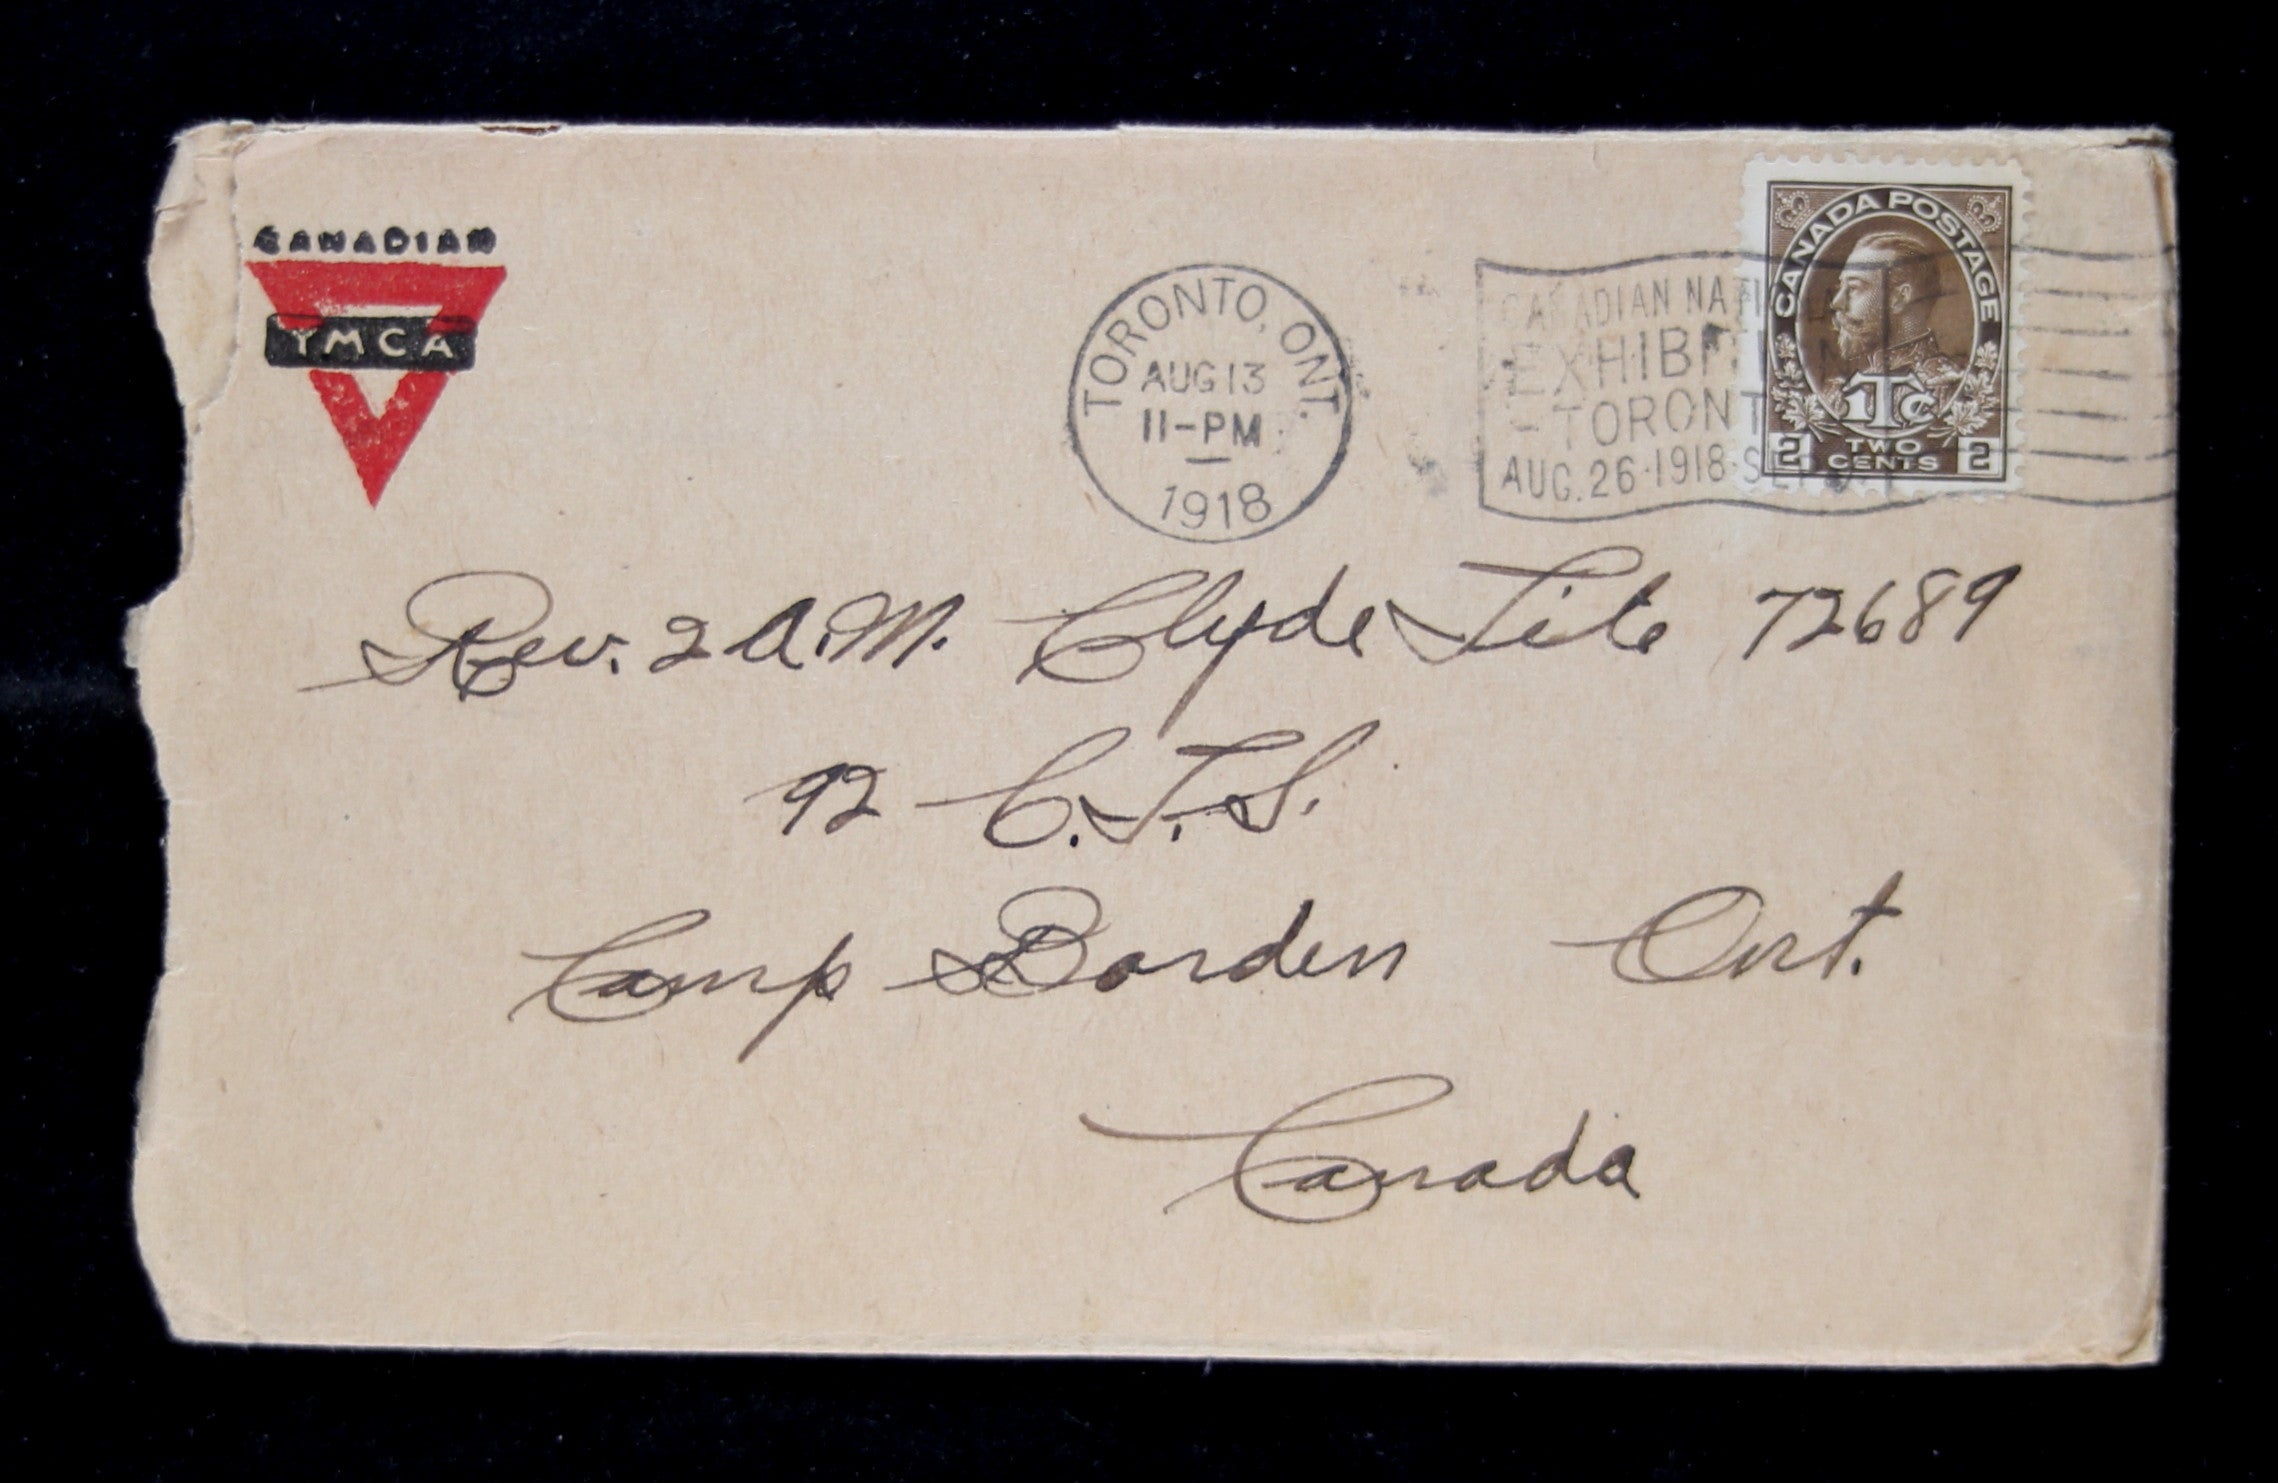 CANADIAN
YMCA
TORONTO, ONT.
AUG 13
11-PM
1918
CANADIAN NATI
EXHIBITION
TORONTO
AUG. 26·1918·SEP
CANADA POSTAGE
1Tc
2 TWO CENTS 2
Rev. 2 A.M. Clyde Tite 72689
92 C.T.S.
Camp Borden Ont.
Canada